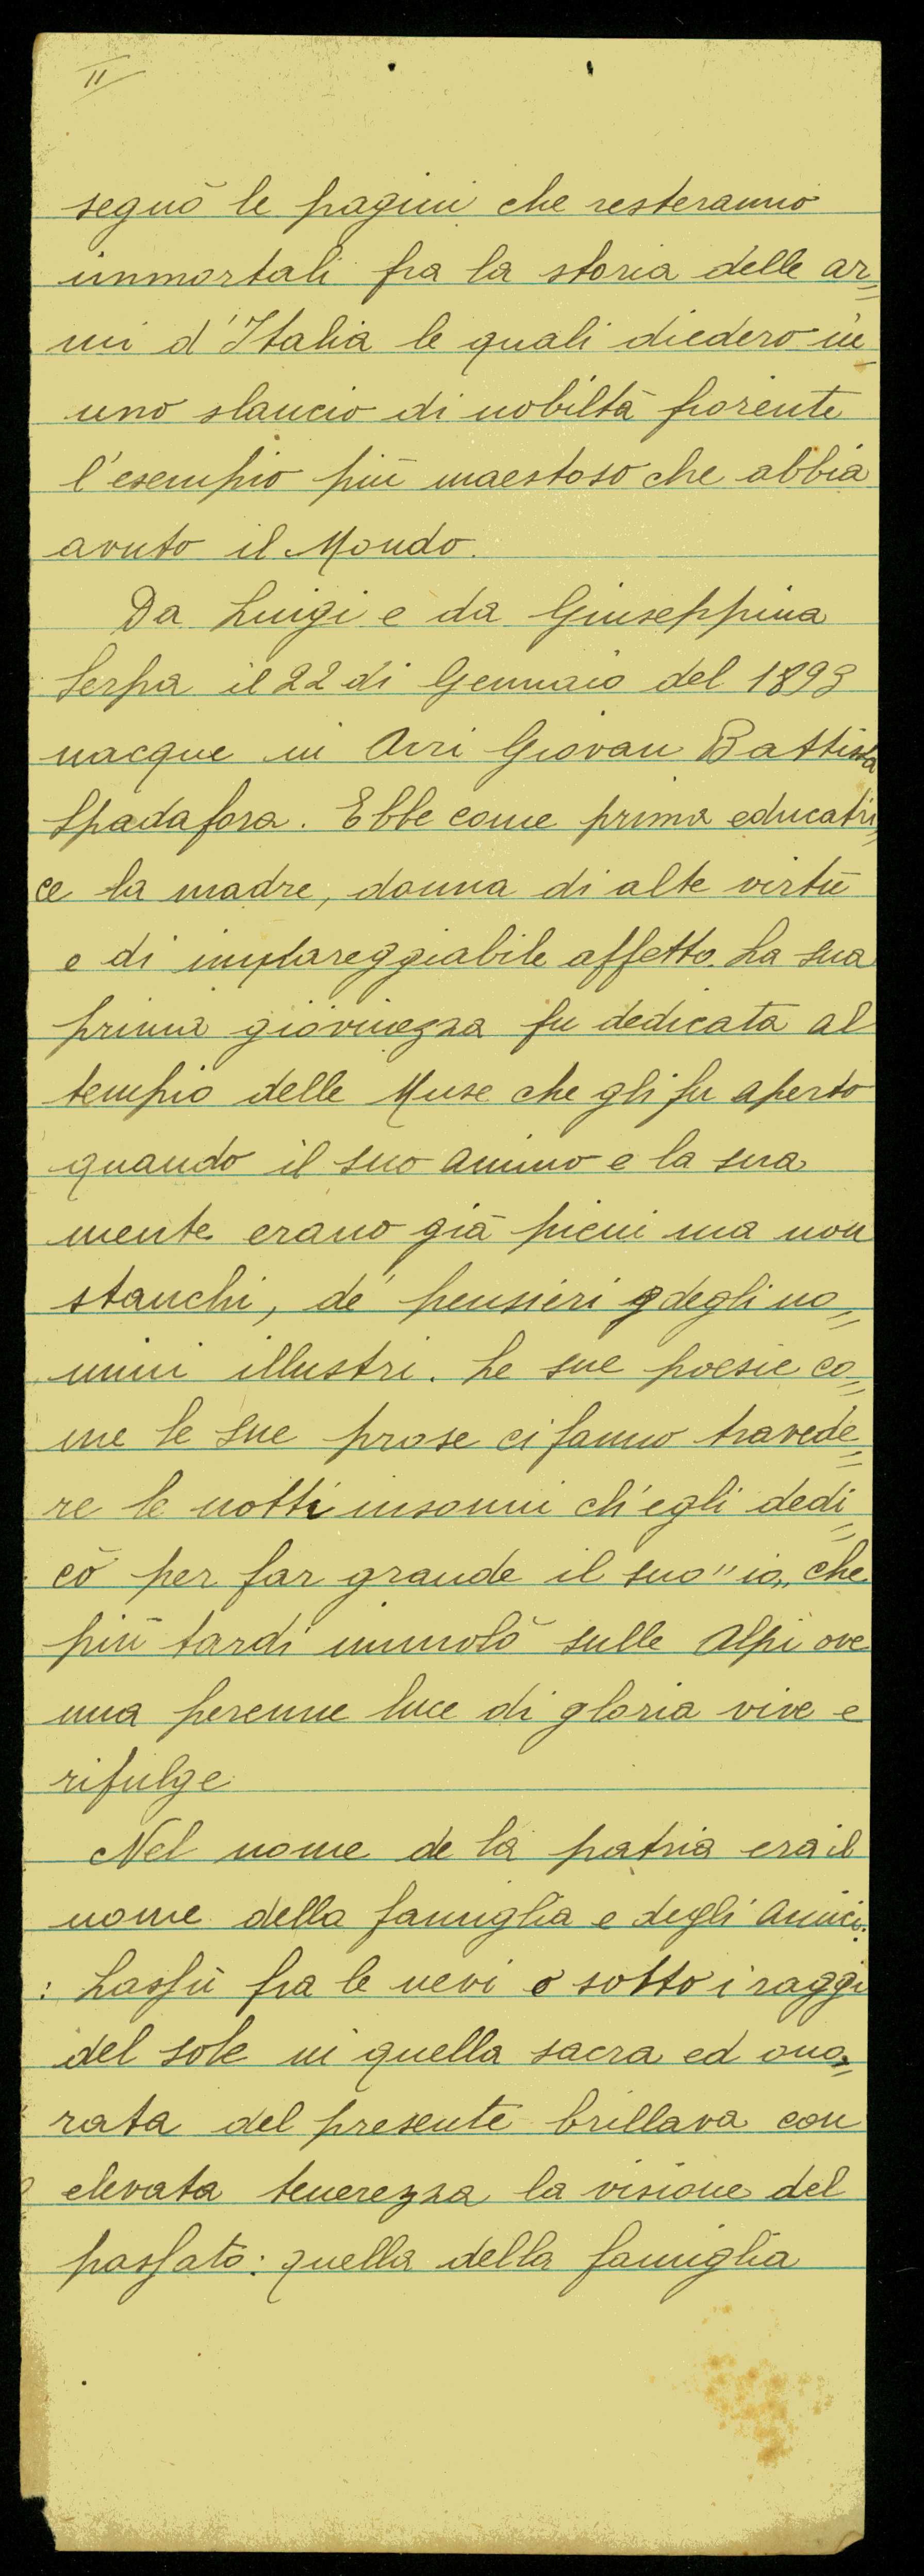 II
segnò le pagini che resteranno
immortali fra la storia delle ar=
mi d'Italia le quali diedero in
uno slancio di nobiltà fiorente
l'esempio più maestoso che abbia
avuto il Mondo.
Da Luigi e da Giuseppina
Serpa il 22 di Gennaio del 1893
nacque in Avri Giovan Battista
Spadafora. Ebbe come prima educatri=
ce la madre, donna di alte virtù
e di impareggiabile affetto. La sua
prima giovinezza fu dedicata al
tempio delle Muse che gli fu aperto
quando il suo animo e la sua
mente erano già pieni ma non
stanchi, de' pensieri degli uo=
mini illustri. Le sue poesie co=
me le sue prose ci fanno travede=
re le notti insonni ch'egli dedi=
cò per far grande il suo "io„ che
più tardi immolò sulle Alpi ove
una perenne luce di gloria vive e
rifulge
Nel nome de la patria era il
nome della famiglia e degli amici:
: Lassù fra le nevi o sotto i raggi
del sole in quella sacra ed ono=
rata del presente brillava con
elevata tenerezza la visione del
passato: quella della famiglia